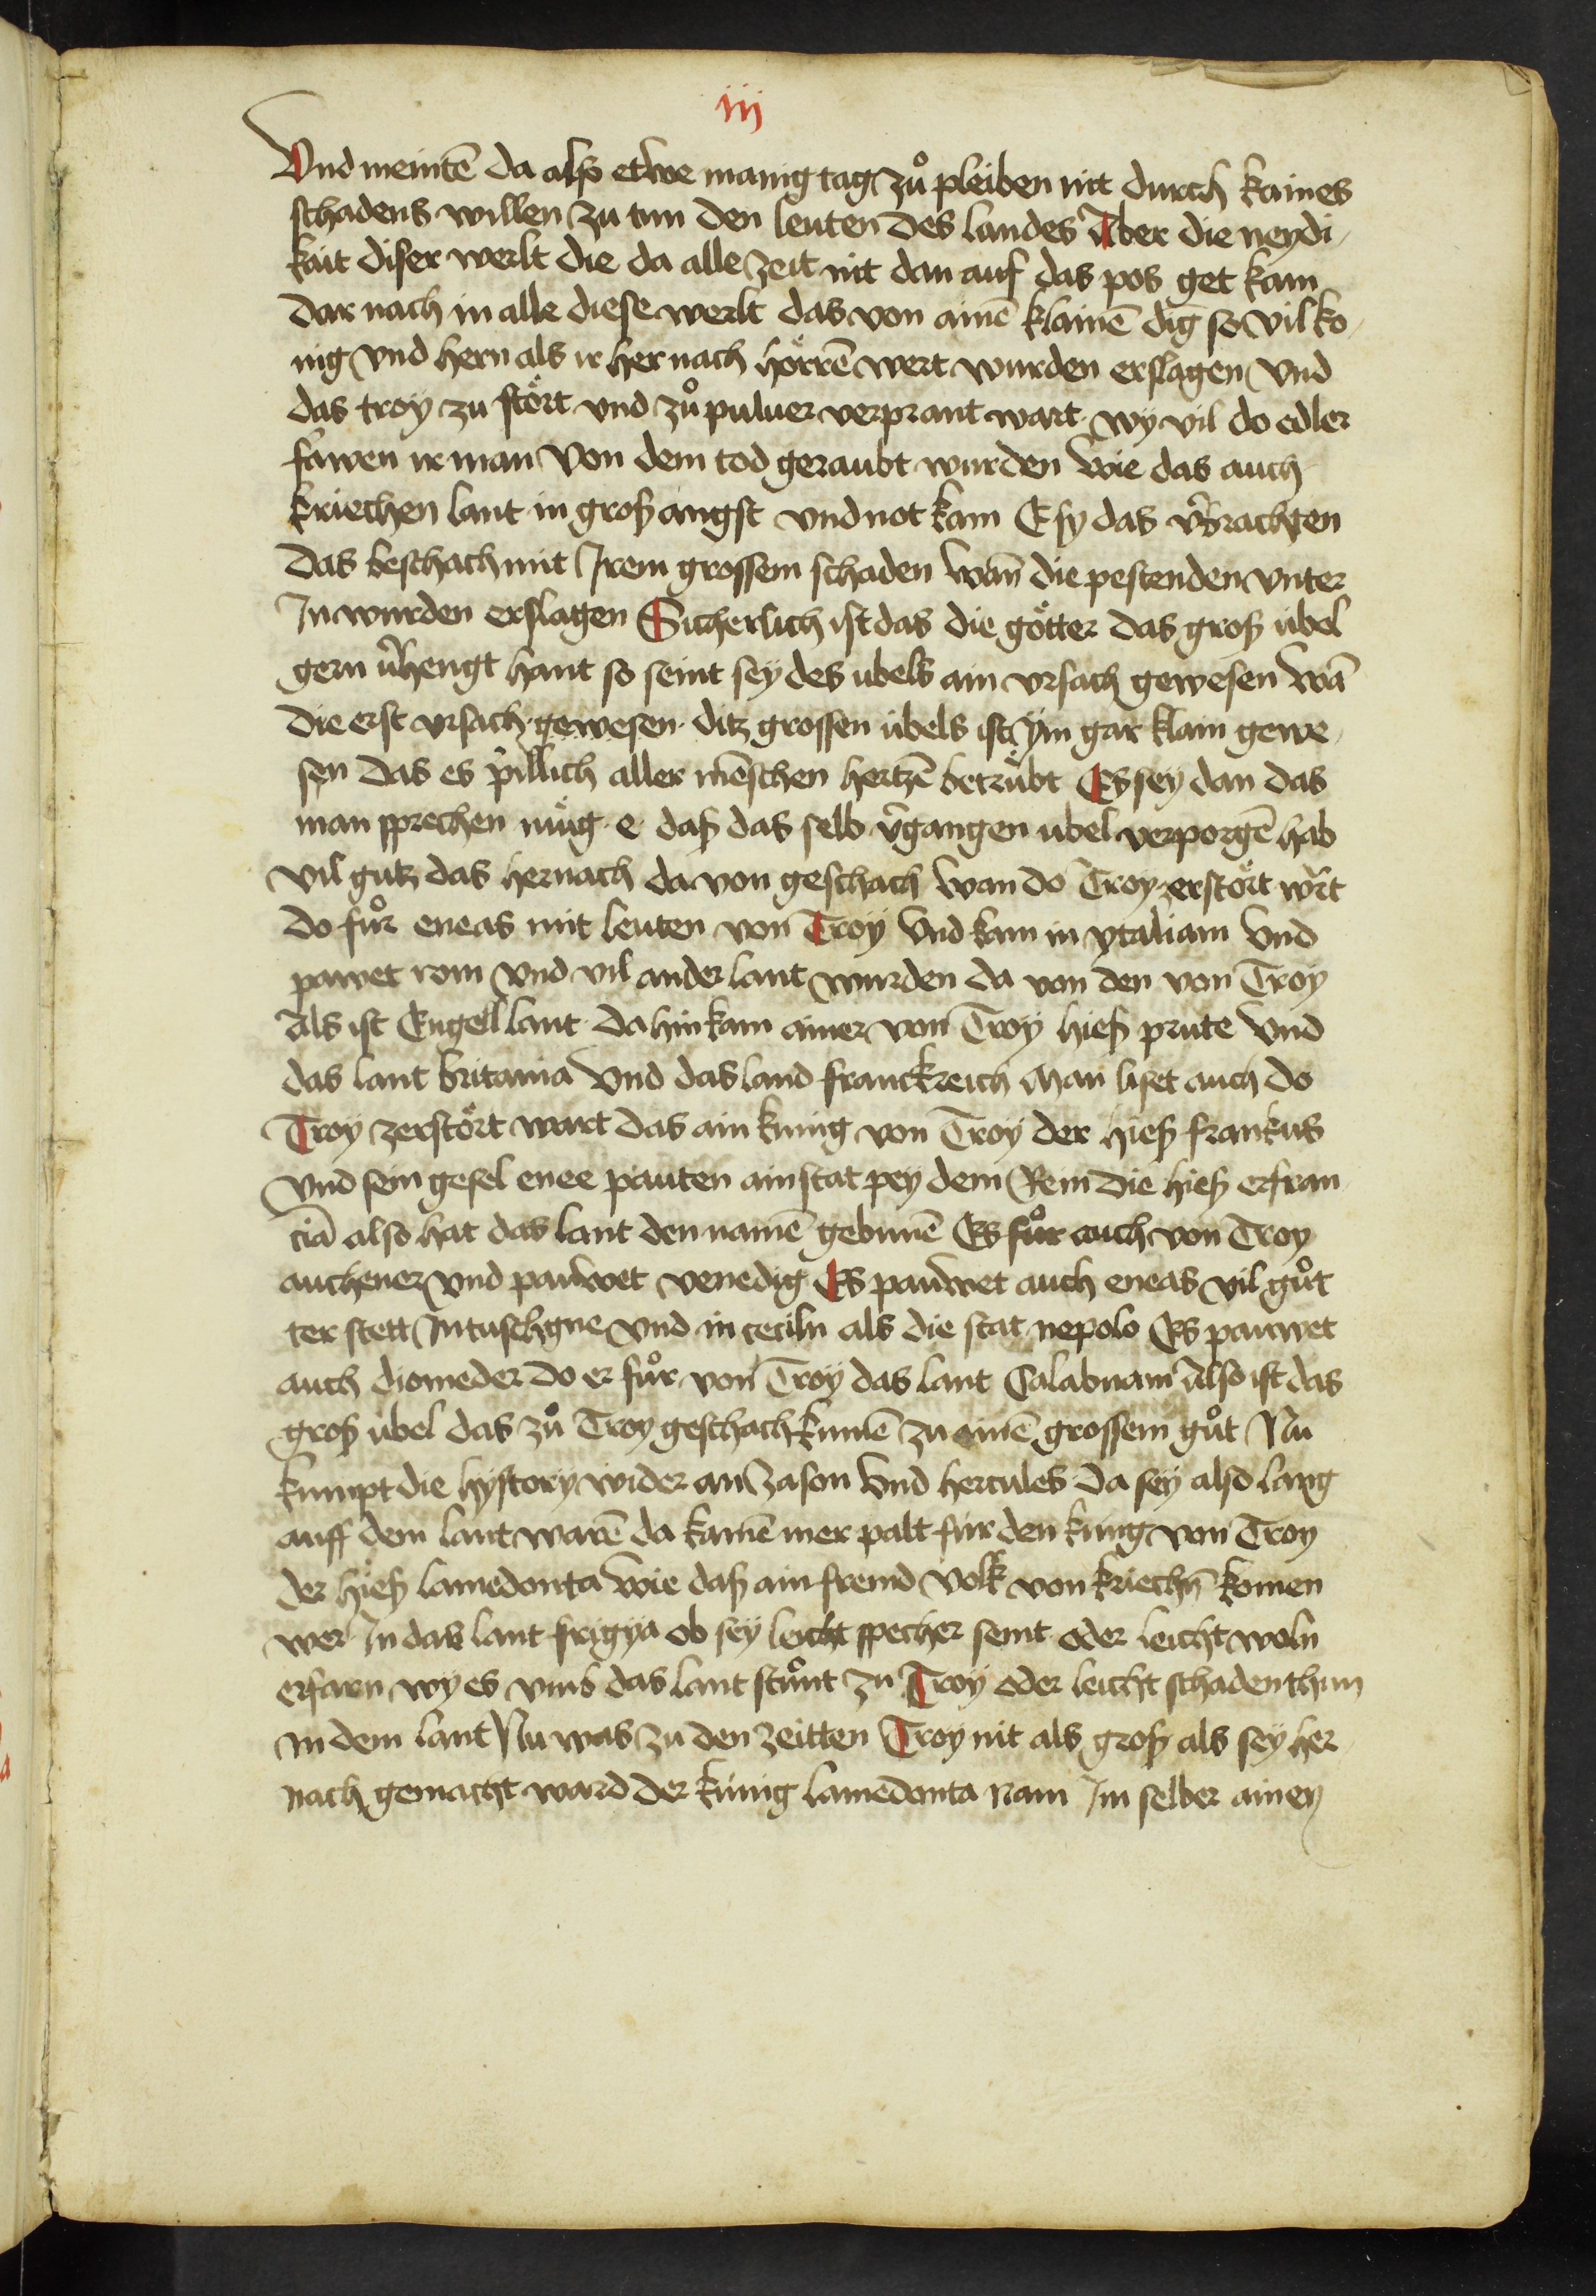 iij
Vnd meintē da alß etwe manig tag zů pleiben nit durch kaines
schadens willen zu tun den leuten des landes Aber die neydi
kait diser werlt die da alle zeit nit dan auf das pos get kam
dar nach in alle diese werlt das von ainē klainē dīg so vil ko
nig vnd hern als ir her nach hörrē wert wurden erslagen vnd
das troy zu stört vnd zů puluer verprant wart wy vil do edler
frawen ir man von dem tod geraubt wurden wie das auch
kriechen lant in groß angst vnd not kam E sy das v̄brachten
das beschach mit Irem grossem schaden wan̄ die pestenden vnter
In wurden erslagen Sicherlich ist das die götter das groß übel
gern v̄hengt hant so seint sey des ubels ain vrsach gewesen wā
die erst vrsach gewesen ditz grossen übels ist ÿm gar klain gewe
sen das es pillich aller mēschen hertzē betrübt Es sey dan das
man sprechen müg e daß das selb v̄gangen ubel verporgē hab
vil gutz das hernach da von geschach wan do Troy zerstört wrt
do fůr eneas mit leuten von Troÿ vnd kam in ytaliam vnd
pawet rom vnd vil ander lant wurden da von den von Troÿ
Als ist Engell lant da hin kam ainer von Troÿ hieß prute vnd
das lant britania vnd das land franckreich Man liset auch do
Troy zerstört wart das ain kunig von Troÿ der hieß frankus
vnd sein gesel enee pauten ain stat pey dem Rein die hieß er fran
ciā also hat das lant den namē gebunē Es fůr auch von Troy
anthener vnd pauwet venedig Es pauwet auch eneas vil gůt
ter stett In tuschgne vnd in ceciln als die stat nepolo Es pauwet
auch diomeder do er fůr von Troÿ das lant Calabriam Also ist das
groß übel das zů Troy geschach kumē zu ainē grossem gůt Nu
kumpt die hystory wider an Jason vnd hercules da sey also lang
auff dem lant warē da kamē mer palt für den küng von Troy
der hieß lamedonta wie daß ain fremd volk von kriechn̄ komen
wer In das lant frigya ob sey leicht specher seint oder leicht woln
erfarn wy es vmb das lant stůnt zu Troÿ oder leicht schaden thun
in dem lant Nu was zu den zeitten Troy nit als groß als sey her
nach gemacht ward der künig lamedonta nam Im selber ainen